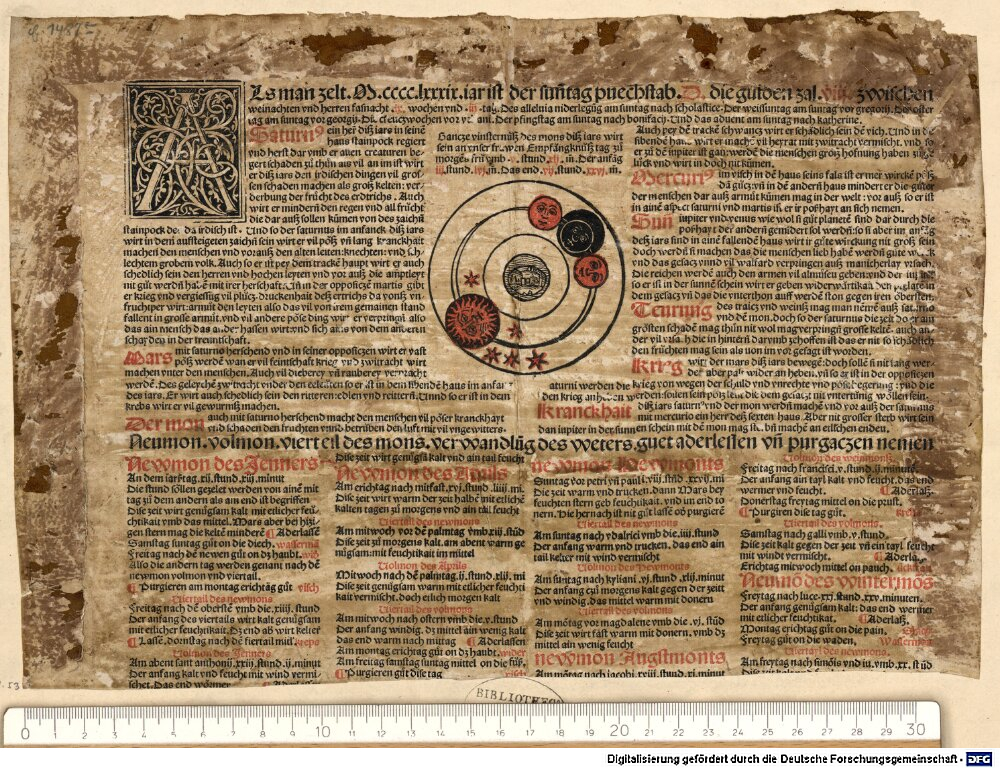 Als man zelt. M.cccc.lxxxix. iar ist der suntag puechstab. D. die guldenn zal. viii. zwischen
weinachten vnd herren fasnacht ix. wochen vnd tag. Des alleluia niderlegug am suntag nach scholastice. Der weissuntag am suntag vor gregorij. Der oster
tag am suntag vor georgij. Die creutzwochen vor vrbani. Der pfingstag am suntag nach bonifacij. Vnd das aduent am suntag nach katherine.
Saturn⁹ ein her diß iars in seine
hans stainpock regiert
vnd herst dar vmb er auen creaturen be
gert schaden zu thun aus vil an im ist wirt
er diß iars den irdischen dingen vil gros
sen schaden machen als groß kelten: ver
derbung der frucht des erdtrichs. Auch
wirt er mindern den regen vnd all frücht
die dar auß sollen kumen von des zaichn
stainpock der da irdisch ist. Vnd so der saturnus im anfanck diß iars
wirt in dem auffsteigeten zaichn sein wirt er vil pöß vn lang kranckhait
machen den menschen vnd voranß den alten leiten: knechten: vnd sch
lechtem grobem volk. Auch so er ist pey dem tracke haupt wirt er auch
schedlich sein den herren vnd hochen leyten vnd vor auß die ampleyt
mit gut werdn haben mit irer herschafft. Vnn in der opposicze martis gibt
er krieg vnd vergiessug vil plutz: druckenhait deß ertrichs da vonß vn
fruchtper wirt: armut den leyten also das vil von irem gemainen stand
fallent in grosse armut. vnd vil andere pöse ding wirt er verpringn. also
das ain mensch das ander hassen wirt: vnd sich ains von dem andern
schayden in der freuntschaft.
Mars mit saturno herschend vnd in seiner opposiczen wirt er vast
pöß werdn dan er vil feintschaft krieg vnd zwitracht wirt
machen vnter den menschen. Auch vil dieberey vn rauberey
werde. Des geleyche zwitracht vnder den eeleuten so er ist in dem sibende hauß im anfang
des iars. Er wirt auch schedlich sein den ritteren: edlen vnd reittern. Vnnd so er ist in dem
krebs wirt er vil gewurmß machen.
Der mon auch mit saturno herschend macht den menschen vil pöser kranckhayt
vnd schaden den fruchten vnnd betrüben den luft mit vil vngewitters.
Gancze vinsternuß des mons diß iars wirt
sein an vnser frawen Empfängknuß tag zu
morges frü vmb v. stund. m. Der anfäg
iii. stund. lvj. m. Das end. vij. stund. xxvj. m.
aturni werden die
den krieg anheben
Auch pey de tracke schwancz wirt er schädlich sein de vich. Vnd in de
sibende hauß wirt er mache vil heyrat mit zwitracht vermischt. vnd so
er zu de iupiter ist gan: werde die menschen groß hofnung haben zu ge
lück vnd wirt in doch nit kumen.
Mercuri⁹ im visch in de haus seins fals ist er mer wircke pöß
dan gut: vn in de andern hauß mindert er die güter
der menschen dar auß armut kumen mag in der welt: vor auß so er ist
in aine aspect saturni vnd martis ist er ir poßhayt an sich nemen.
Sun iupiter vnd venus wie wol sy gut planete sind dar durch die
poßhayt der andern gemidert sol werdn: so sy aber im anfang
deß iars sind in aine fallende haus wirt ir gute wirckung nit groß sein
doch werdn sy machen das die menschen lieb habe werdn gute werck
vnd das gesatz vnnd vil walfard verpringen auß manicherlay vrsach.
Die reichen werde auch den armen vil almusen geben: vnd der iupiter
so er ist in der sunnen schein wirt er geben widerwärtikait den prelaten in
dem gesatz vn das die vnterthon auff werde ston gegen iren obersten.
Teurung des traicz vnd weintz mag man nemen auß sat. mar.
vnd de mon. doch so der saturnus die zeit so er am
grösten schaden mag thun nit wol mag verpringn grosse kelte: auch an
der vil vrsach die in hindern darumb zehoffen ist das er nit so schädlich
den fruchten mag sein als von im vor gesagt ist worden.
Krieg wirt der mars diß iars bewegen: doch solle sy nit lang wer
den aber pald wider an heben. vn so er ist in der opposiczen
krieg von wegen der schuld vnd vnrechte vnd pöse begerung: vnd die
werden sollen sein pöß leut die dem gesacz nit vntertenig wöllen sein.
Kranckhait diß iars saturn⁹ vnd der mon werdn mache vnd vor auß der saturnus
mit mercurio ein herr deß sexten haus. Aber mit grosser sterb wirt sein
dan iupiter in der sunnen schein mit de mon mag sy nit machn an etlichen enden.
Neumon. volmon. vierteil des mons. verwandlūg des weters. guet aderlessen vn purgaczen nemen
Newmon des Jenners
An dem iarstag. xij. stund. xiij. minut
Die stund sollen gezelet werden von aine mit
tag zu dem andern als an end ist begriffen
Die zeit wirt genugsam kalt mit etlicher feu
chtikait vmb das mittel. Mars aber bei hitzi
gen stern mag die kelte mindere ¶ Aderlasse
Samstag suntag gut on die diech. wasserman
Freitag nach de newen gut on dz haubt. wid
Also die andern tag werden genant nach den
newmon volmon vnd viertail.
¶ Purgieren am montag erichtag gut visch
Viertail des newmons
Freitag nach de oberste vmb die. xiiij. stund
Der anfang des viertails wirt kalt genugsam
mit etlicher feuchtikait. Dz end aß wirt kelter
¶ Lasse. Dornstag nach de viertail mit krepß
Volmon des Jenners
Am abent sant anthonij. xxiij. stund. ij. minut
Der anfang kalt vnd feucht mit wind vermi
schet. Das end wärmer ¶ Aderlassen
Dise zeit wirt genugsa kalt vnd ain tail feucht
Newmon des Aprils
Am erichtag nach mitfast. xvj. stund. liiij. mi.
Die zeit wirt warm der zeit halbe mit etliche
kalten tagen zu morgens vnd ain tail feucht
Viertail des newmons
Am mitwoch vor de palmtag vmb. xij. stūd
Dise zeit zu morgens kalt. am abent warm ge
nugsam: mit feuchtikait im mittel
Volmon des Aprils
Mitwoch nach de palmtag. ij. stund. xlij. mi
Dise zeit werden kalt warm mit etlicher feuchti
kait vermischt. Doch etlich morgen kalt
Viertail des volmons
Am mitwoch nach ostern vmb die. v. stund
Der anfang windig. dz mittel ain wenig kalt
das end warm nach mitag ¶ Aderlassen
Am montag erichtag gut on dz haubt. wider
Am freitag samstag suntag mittel on die fuß.
¶ Purgieren gut dise tag visch
newmon Hewmonts
Suntag vor petri vn pauli. viij. stūd. xxvij. mi.
Die zeit warm vnd trucken. dann Mars bey
feuchten stern geb feuchtikait. vnd im end to
nern. Die hernach ist nit gut lasse ob purgiere
Viertail des newmons
Am suntag nach vdalrici vmb die. iiij. stund
Der anfang warm vnd trucken. das end ain
tail kelter mit wind vermischt
Volmon des Hewmons
Am suntag nach kyliani. vj. stund. xlj. minut
Der anfang zu morgens kalt gegen der zeit
vnd windig. das mittel warm mit donern
Viertail des volmons
Am motag vor magdalene vmb die. vj. stūd
Die zeit wirt fast warm mit donern. vmb dz
mittel ain wenig feucht
newmon Augstmonts
Am montag nach iacobi. xxiij. stund. xj. minut
Volmon des weinmonts
Freitag nach francisci. v. stund. ij. minut
Der anfang ain tayl kalt vnd feucht. das end
wermer vnd feucht. ¶ Aderlaß.
Donerstag freytag mittel on die prust.
¶ Purgiren dise tag gut. krebs
Viertail des volmons.
Samstag nach galli vmb. v. stund.
Dise zeit kalt gegen der zeit vn ein tayl feucht
mit windt vermischt. ¶ Aderla.
Erichtag mitwoch mittel on pauch.
Neumon des wintermos
Freytag nach luce. xxj. stund. xxv. minuten.
Der anfang genugsam kalt: das end wermer
mit etlicher feuchtikait. ¶ Aderlaß.
Montag erichtag gut on die pain.
Freytag gut on die waden. Wasserman
Viertayl des newmons.
Am freytag nach simonis vnd iu. vmb. xx. stūd
BIBLIOTHECA
0 1 2 3 4 5 6 7 8 9 10 11 12 13 14 15 16 17 18 19 20 21 22 23 24 25 26 27 28 29 30
Digitalisierung gefördert durch die Deutsche Forschungsgemeinschaft - DFG